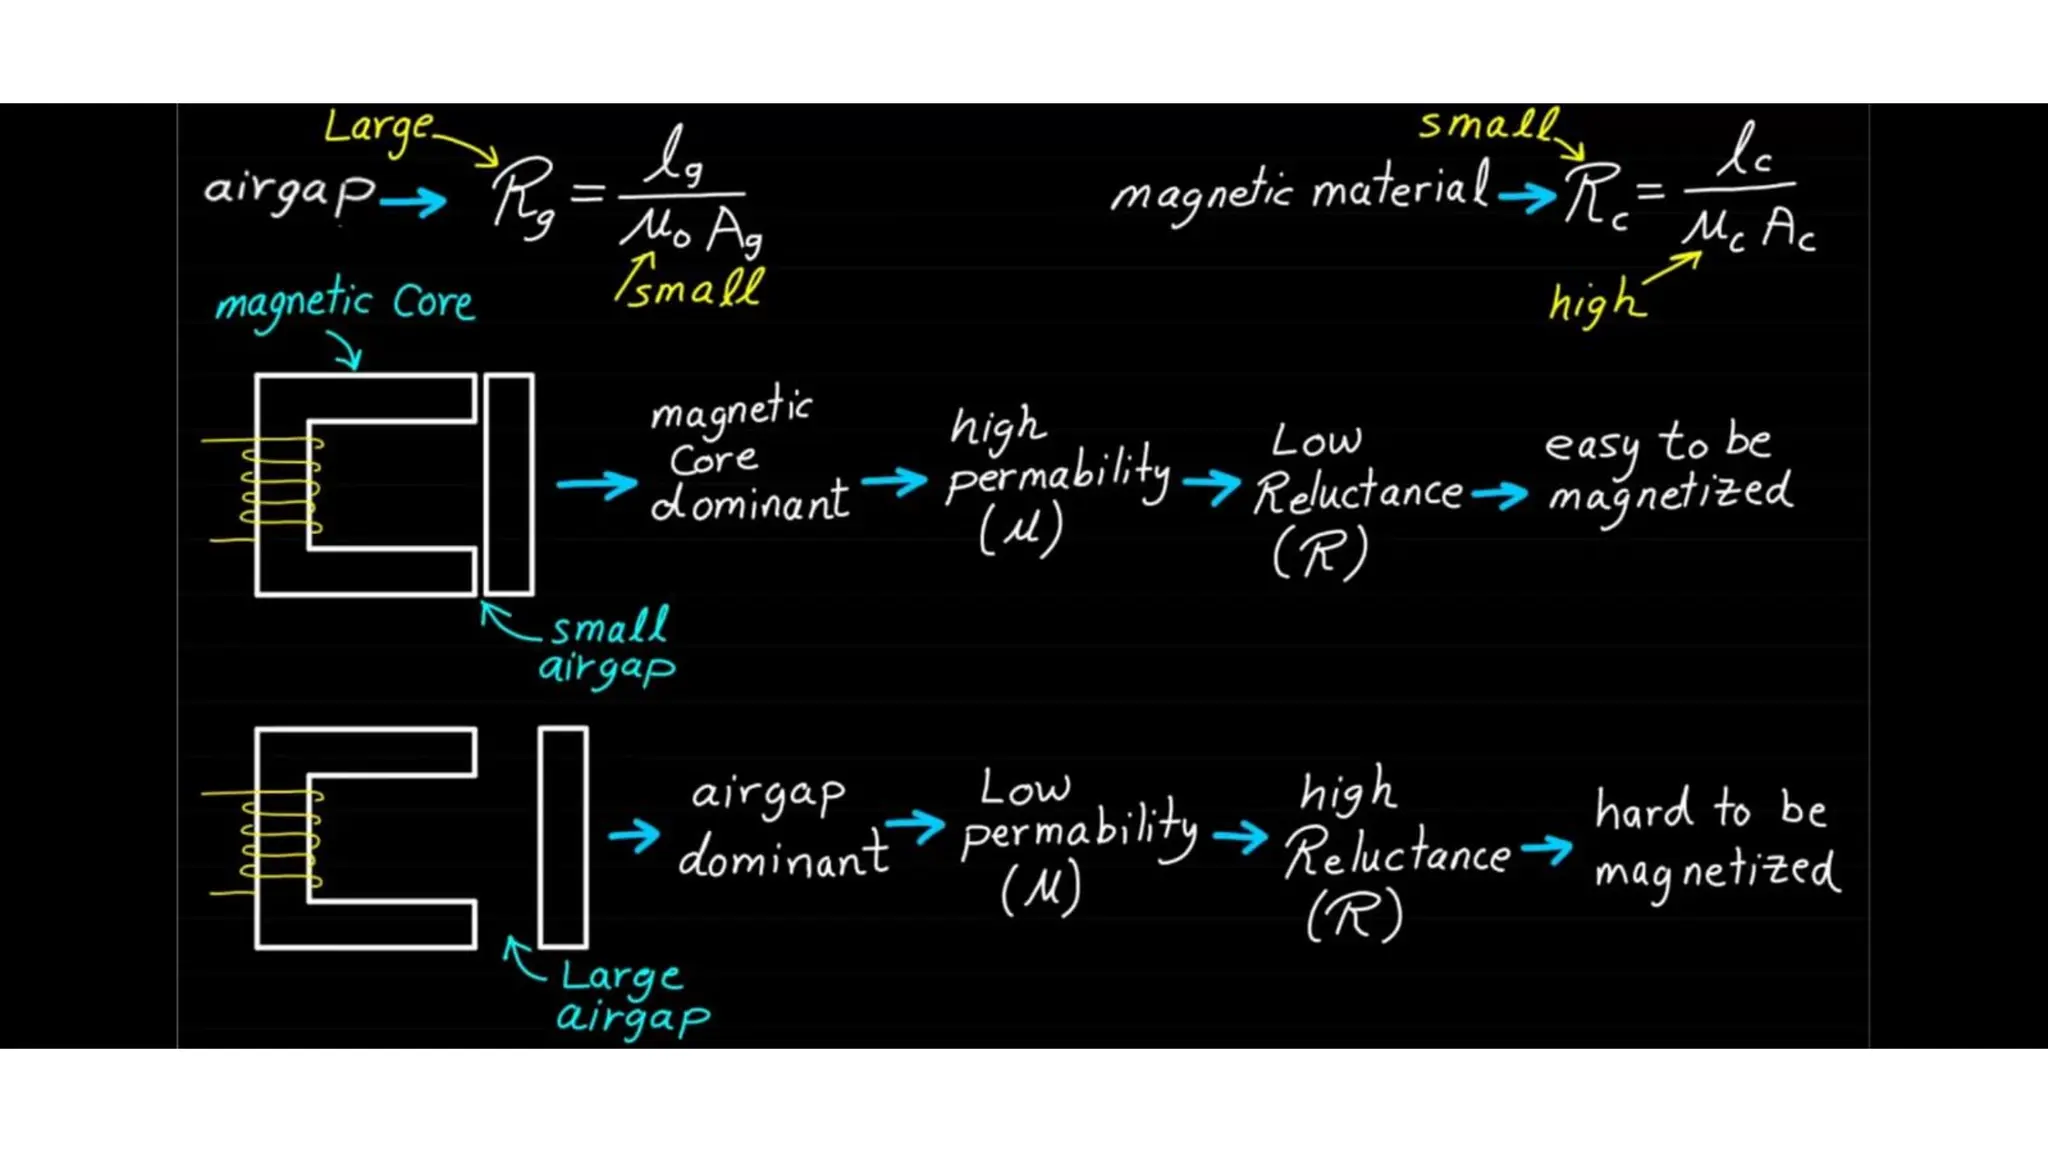 Large
airgap → ℛg = lg / μ0 Ag
small
small
magnetic material → ℛc = lc / μc Ac
high
magnetic Core
magnetic
Core
dominant
high
permability
(μ)
Low
Reluctance
(ℛ)
easy to be
magnetized
small
airgap
airgap
dominant
Low
permability
(μ)
high
Reluctance
(ℛ)
hard to be
magnetized
Large
airgap